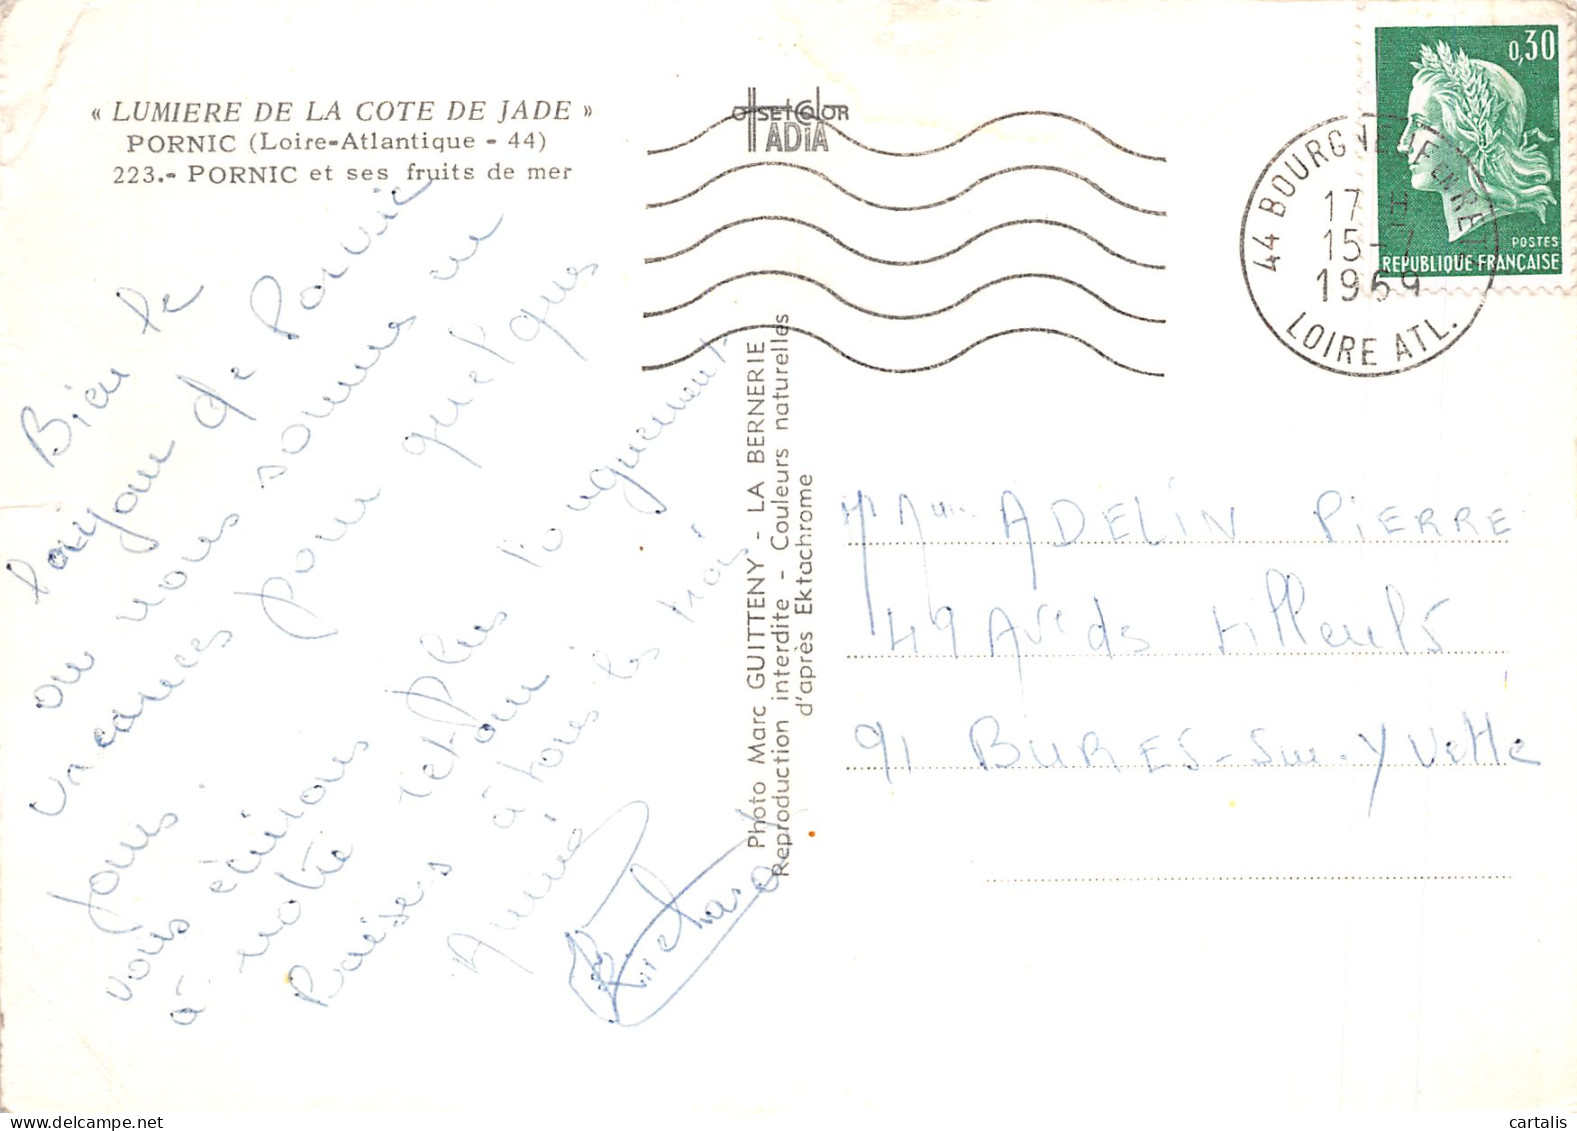 « LUMIERE DE LA COTE DE JADE »
PORNIC (Loire-Atlantique - 44)
223.- PORNIC et ses fruits de mer
Bien le
bonjour de Pornic
ou nous sommes en
vacances pour quelques
jours.
vous écrirons plus longuement
à notre retour
Baisers à tous les trois
Annie
Richard
Photo Marc GUITTENY - LA BERNERIE
Reproduction interdite - Couleurs naturelles
d'après Ektachrome
OffsetColor
ADIA
44 BOURGNEUF EN RETZ
17 H
15-7
1969
LOIRE ATL.
0,30
POSTES
REPUBLIQUE FRANÇAISE
ADELIN PIERRE
49 Ave ds tilleuls
91 BURES-Sur-Yvette
cartalis